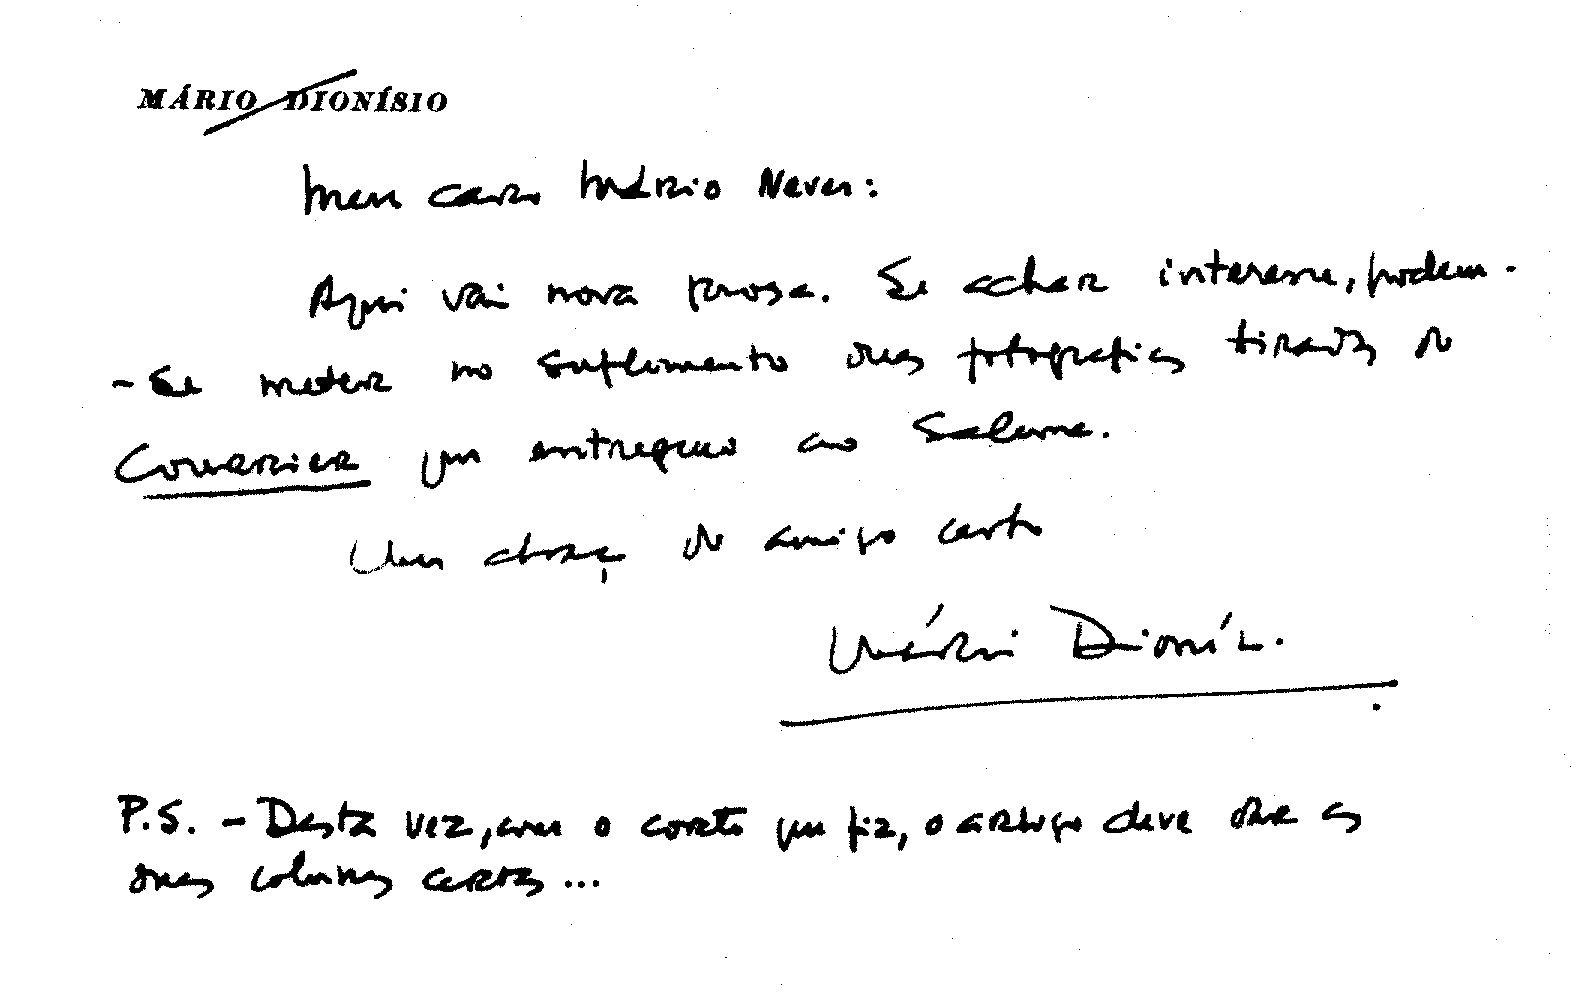 MÁRIO DIONÍSIO
Meu caro Mário Neves:
Aqui vai nova prosa. Se achar interesse, podem-
-se meter no suplemento duas fotografias tiradas do
Courrier que entreguei ao Salema.
Um abraço do amigo certo
Mário Dionísio.
P.S. - Desta vez, com o corte que fiz, o artigo deve dar as
duas colunas certas...